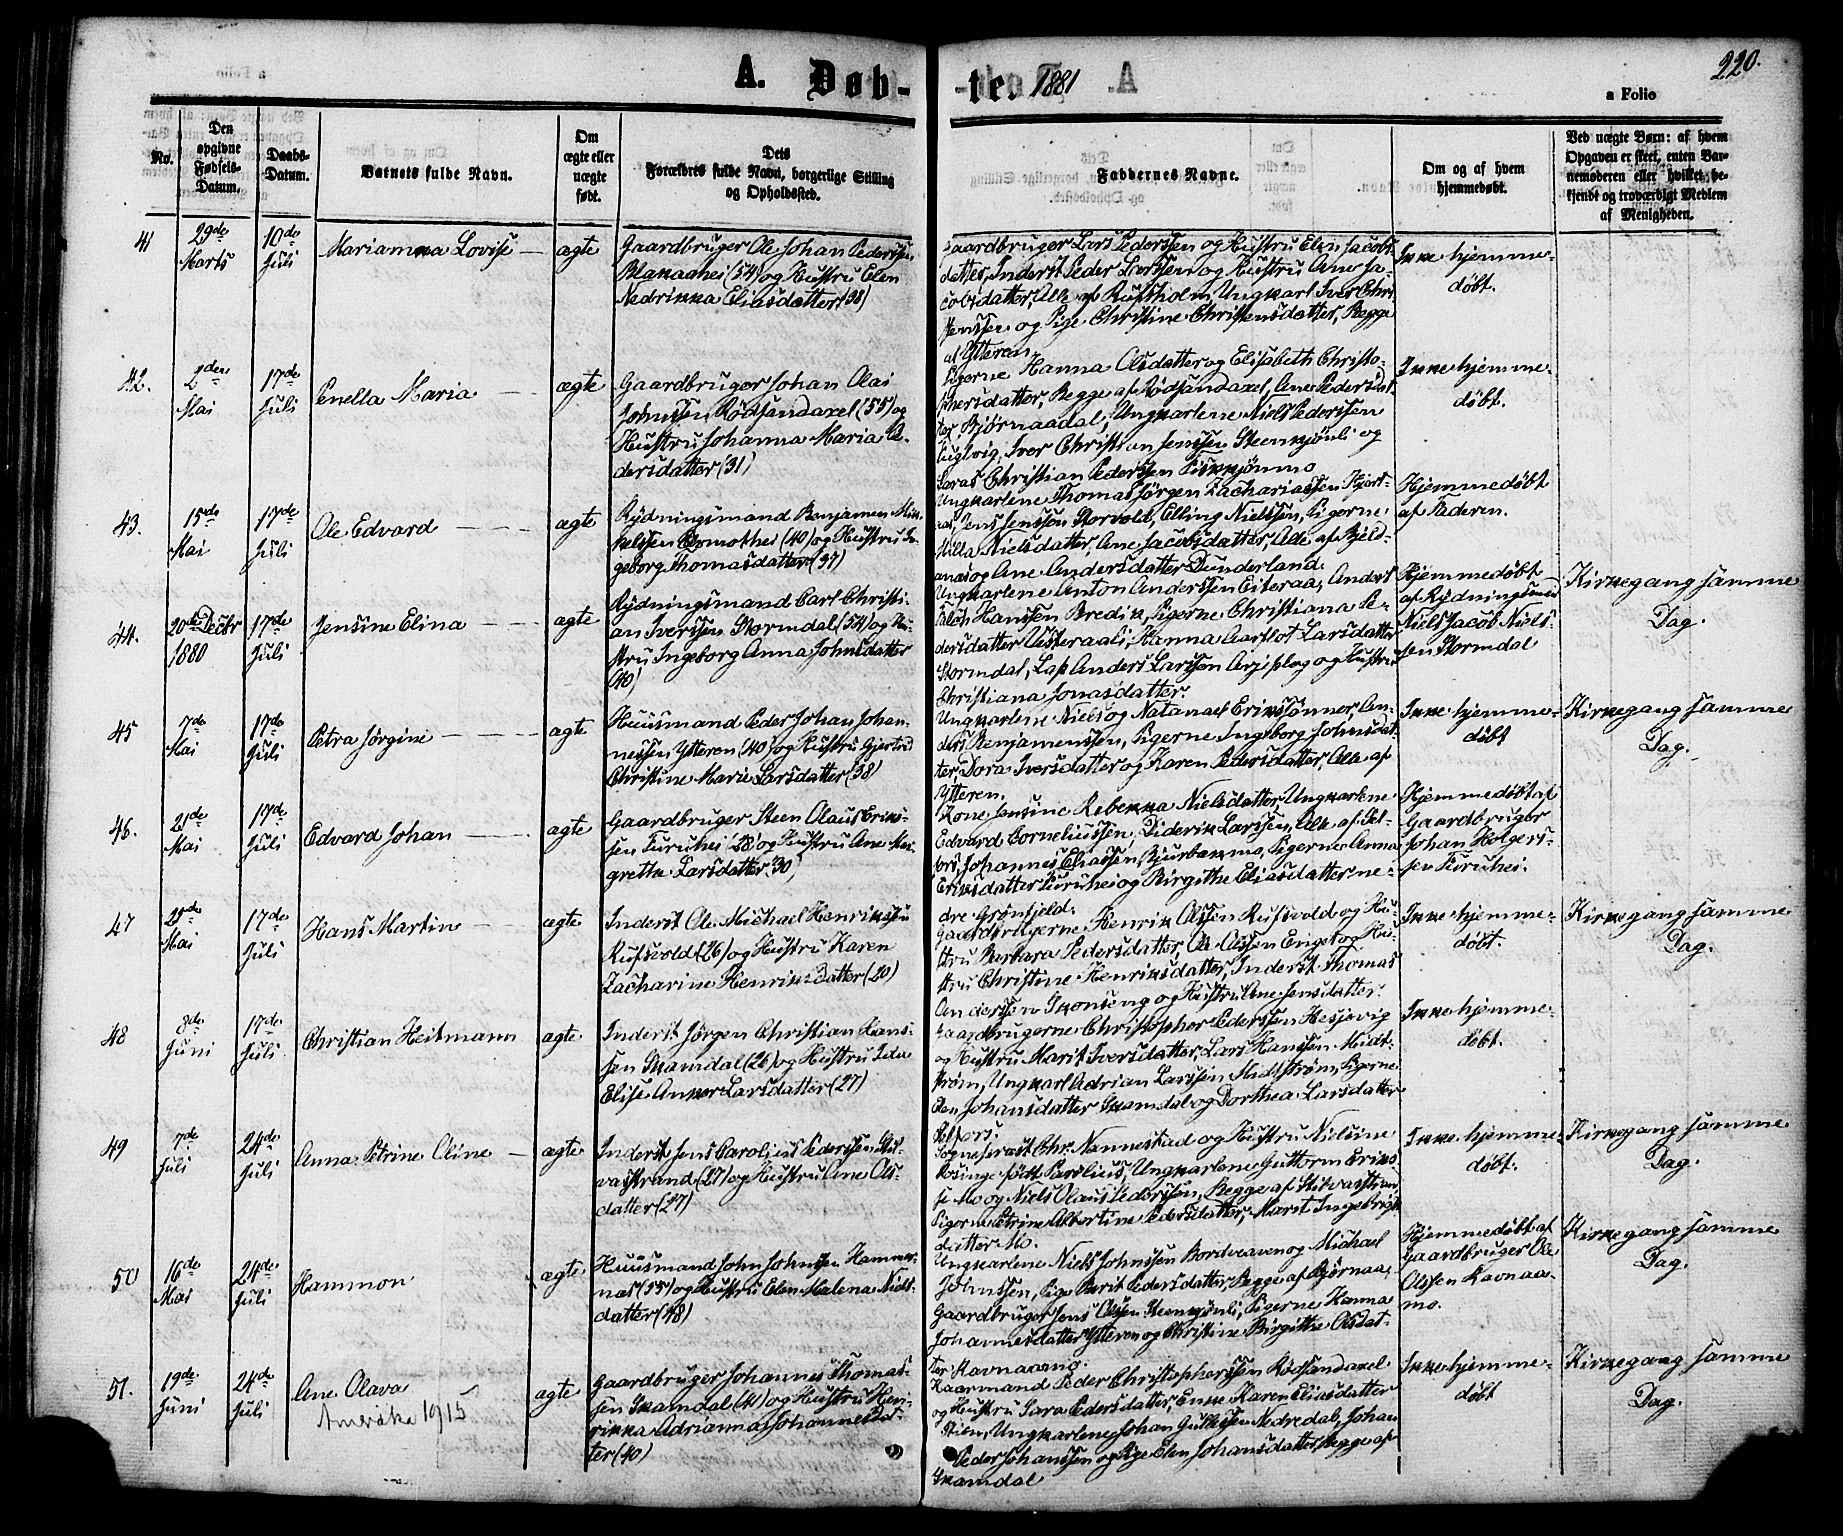 220.
A. Døb-
-te. 1881
a Folio
No.
Den
opgivne
Fødsels-
Datum.
Daabs-
Datum.
Barnets fulde Navn.
Om
ægte eller
uægte
født.
Dets
Forældres fulde Navn, borgerlige Stilling
og Opholdssted.
Faddernes Navne.
Om og af hvem
hjemmedøbt.
Ved uægte Børn: af hvem
Opgaven er skeet, enten Bar-
nemoderen eller hvilket be-
kjendt og troværdigt Medlem
af Menigheden.
41
29de
Marts
10de
Juli
Marianna Lovise
ægte
Gaardbruger Ole Johan Pederssen
Blakaahei (54) og Hustru Elen
Nedrikka Eliasdatter (38)
Gaardbruger Lars Pederssen og Hustru Elen Jacobs-
datter, Inderst Peder Larssen og Hustru Ane Ja-
cobsdatter, Alle af Rufsholm, Ungkarl Iver Chri-
stenssen og Pige Christine Christensdatter, Begge
af Ytteren.
Ikke hjemme-
døbt.
42.
2den
Mai
17de
Juli
Penella Maria
ægte
Gaardbruger Johan Olai
Johnssen Rødsandaxel (55) og
Hustru Johanna Maria Pe-
dersdatter (31)
Pigerne Hanna Olsdatter og Elisabeth Christo-
phersdatter, Begge af Rødsandaxel, Ane Pedersdat-
ter, Bjørnaadal, Ungkarlene Niels Pederssen
Iver Christian Jenssen Steenkjønli og
Christian Pederssen
Ikke hjemme-
døbt.
43.
15de
Mai
17de
Juli
Ole Edvard
ægte
Rydningsmand Benjamen Mik-
kelssen Ormothei (40) og Hustru In-
geborg Thomasdatter (37)
Ungkarlene Thomas Jørgen Zachariassen Hjort-
Jens Jenssen Storvold, Elling Nielssen, Pigerne
Nielsdatter, Ane Jacobsdatter, Alle af Bjeld-
anæs og Ane Andersdatter Dunderland.
Hjemmedøbt
af Faderen.
44.
20de Decbr
1880
17de
Juli
Jensine Elina
ægte
Rydningsmand Carl Christi-
an Iverssen Stormdal (54) og Hu-
stru Ingeborg Anna Johnsdatter
(40)
Ungkarlene Anton Anderssen Eiteraa, Anders
Hanssen Bredik, Pigerne Christiana Pe-
dersdatter Vesteraali, Hanna Larsdatter
Stormdal, Lap Anders Larssen Arjeplog og Hustru
Christiana Jonasdatter.
Hjemmedøbt
af Rydningsmand
Niels Jacob Niels-
sen Stormdal
Kirkegang samme
Dag.
45
7de
Mai
17de
Juli
Petra Jørgine
ægte
Huusmand Peder Johan Johan-
nessen Ytteren (40) og Hustru Gjertrud
Christine Marie Larsdatter (38)
Ungkarlene Niels og Natanael Erikssønner, An-
ders Benjamenssen, Pigerne Ingeborg Johnsdat-
ter, Dora Iversdatter og Karen Pedersdatter Alle af
Ytteren.
Ikke hjemme-
døbt
Kirkegang samme
Dag.
46.
21de
Mai
17de
Juli
Edvard Johan
ægte
Gaardbruger Steen Olaus Eriks-
sen Furuhei (28) og Hustru Ane Mar-
grethe Larsdatter (30)
Kone Jensine Rebekka Nielsdatter, Ungkarlene
Edvard Corneliussen, Diderik Larssen, Alle af Sel-
fors, Johannes Eliassen, Bjurbækmo, Pigerne Anna
Eriksdatter Furuhei og Birgithe Eliasdatter ne-
dre Grønfjeld.
Hjemmedøbt af
Gaardbruger
Johan Holgers-
sen Furuhei.
47
29de
Mai
17de
Juli
Hans Martin
ægte
Inderst Ole Michael Henrikssen
Rufsvold (26) og Hustru Karen
Zacharine Henriksdatter (20)
Gaardbrugerne Henrik Olssen Rufsvold og Hu-
stru Barbara Pedersdatter, Ole Olssen Enget og Hu-
stru Christine Henriksdatter, Inderst Thomas
Anderssen Skonseng og Hustru Ane Jensdatter.
Ikke hjemme-
døbt.
Kirkegang samme
Dag.
48
8de
Juni
17de
Juli
Christian Heitmann
ægte
Inderst Jørgen Christian Hans-
sen Skamdal (26) og Hustru Lea
Elise Anker Larsdatter (27)
Gaardbrugerne Christopher Pederssen Hesjevig
og Hustru Marit Iversdatter, Lars Hanssen Midt-
strøm, Ungkarl Adrian Larssen Midtstrøm, Pigerne
Elen Johansdatter Skamdal og Dorthea Larsdatter
Selfors.
Ikke hjemme-
døbt.
49
7de
Juli
24de
Juli
Anna Petrine Oline
ægte
Inderst Jens Carolius Pederssen Sti-
vasstrand (27) og Hustru Ane Ols-
datter (27)
Sogneprest Chr. Nannestad og Hustru Nielsine
født Carolius, Ungkarlene Guttorm Eriks-
sen Mo og Niels Olaus Pederssen, Begge af Stivasstrand
Pigerne Petrine Albertine Pedersdatter, Marit Ingebrigts-
datter Mo.
Ikke hjemme-
døbt.
Kirkegang samme
Dag.
50
16de
Mai
24de
Juli
Hammon
ægte
Huusmand John Johnssen Hammer-
næs (55) og Hustru Elen Malena Niels-
datter (48)
Ungkarlene Niels Johnssen Bordvedaven og Michael
Johnssen, Pige Berit Pedersdatter, Begge af Bjørnaa,
Gaardbruger Jens Olssen Steenkjønli, Pigerne Hanna
Johannesdatter Ytteren og Christine Birgitte Olsdat-
ter Ravnaamo.
Hjemmedøbt af
Gaardbruger Ole
Olssen Ravnaa-
mo.
Kirkegang samme
Dag.
51.
19de
Juni
24de
Juli
Ane Olava
Amerika 1915
ægte
Gaardbruger Johannes Thomas-
sen Skamdal (41) og Hustru Hen-
rikka Adrianna Johannesdat-
ter (40)
Kaarmand Peder Christopherssen Rødsandaxel
og Hustru Sara Pedersdatter, Enke Karen Eliasdatter
Stien, Ungkarlene Johan Gulliksen Nedredal, Johan
Peder Johanssen og Pige Elen Johansdatter, Begge af
Skamdal
Ikke hjemme-
døbt
Kirkegang samme
Dag.